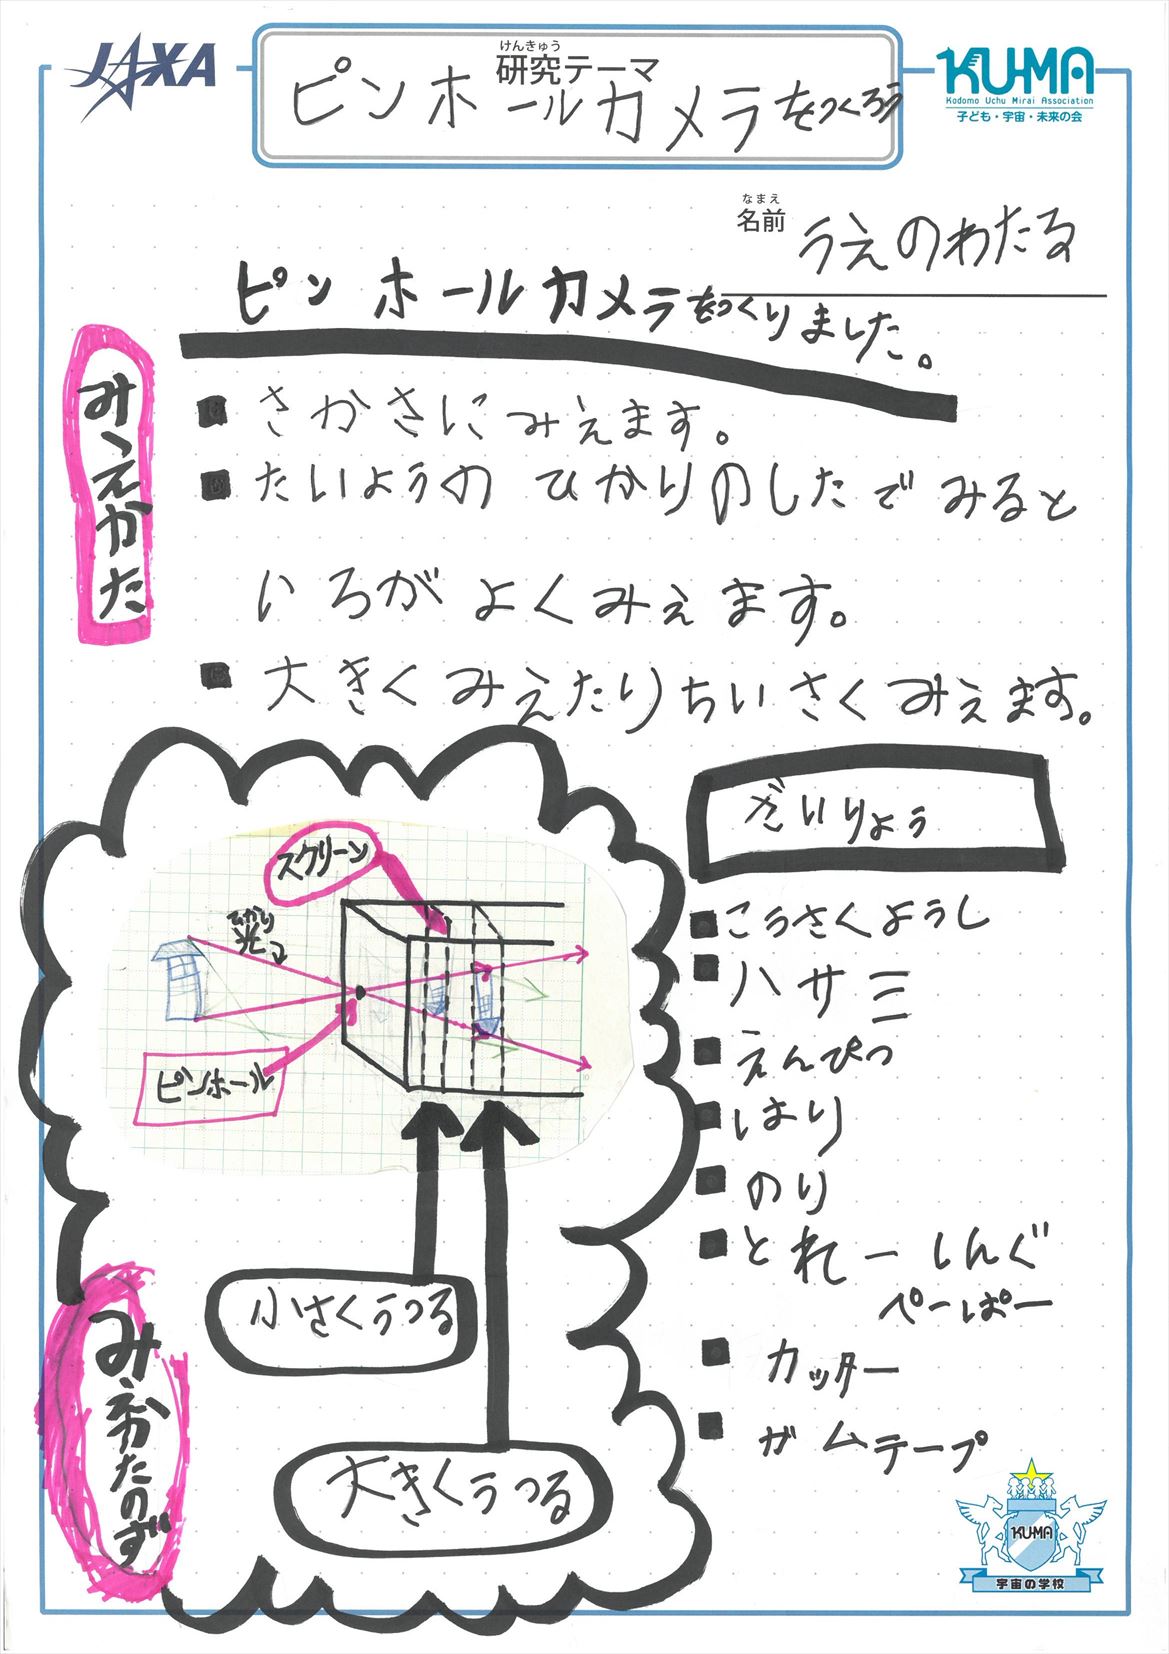 JAXA
けんきゅう
研究テーマ
ピンホールカメラをつくろう
KU-MA
Kodomo Uchu Mirai Association
子ども・宇宙・未来の会
なまえ
名前
うえのわたる
ピンホールカメラをつくりました。
みえかた
さかさにみえます。
たいようの ひかりのしたでみると
いろがよくみえます。
大きくみえたりちいさくみえます。
ざいりょう
こうさくようし
ハサミ
えんぴつ
はり
のり
とれーしんぐ
ぺーぱー
カッター
ガムテープ
スクリーン
ひかり
光
ピンホール
小さくうつる
大きくうつる
みえかたのず
KU-MA
宇宙の学校